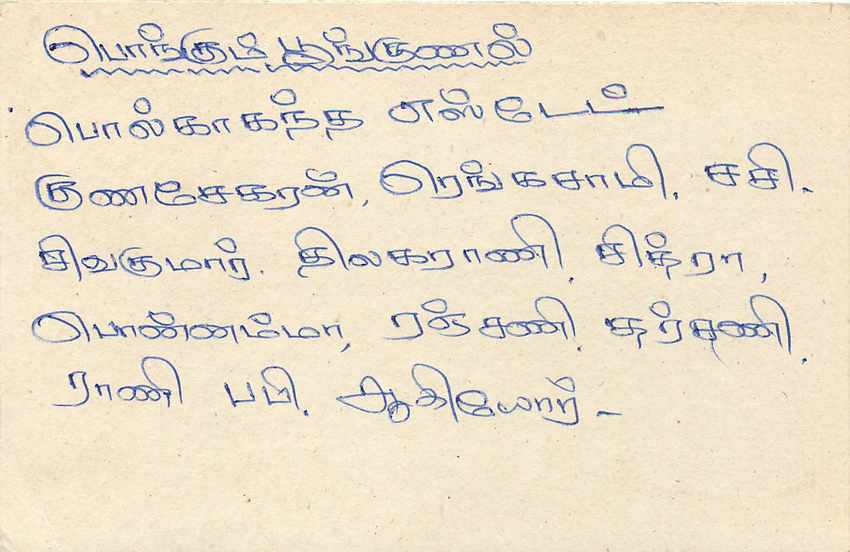 பொங்கும் பூங்குணல்
பொல்காகந்த எஸ்டேட்
குணசேகரன், ரெங்கசாமி, சசி.
சிவகுமார். திலகராணி, சித்ரா,
பொன்னம்மா, ரஞ்சணி, தர்சணி,
ராணி பபி. ஆகியோர் -